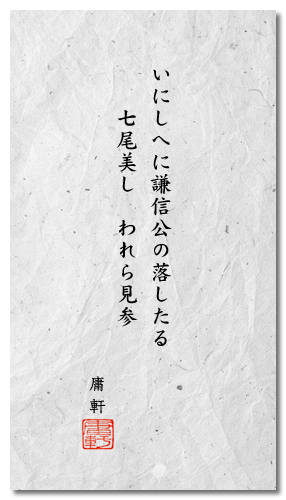 いにしへに謙信公の落したる
七尾美し　われら見参
庸軒
庸軒